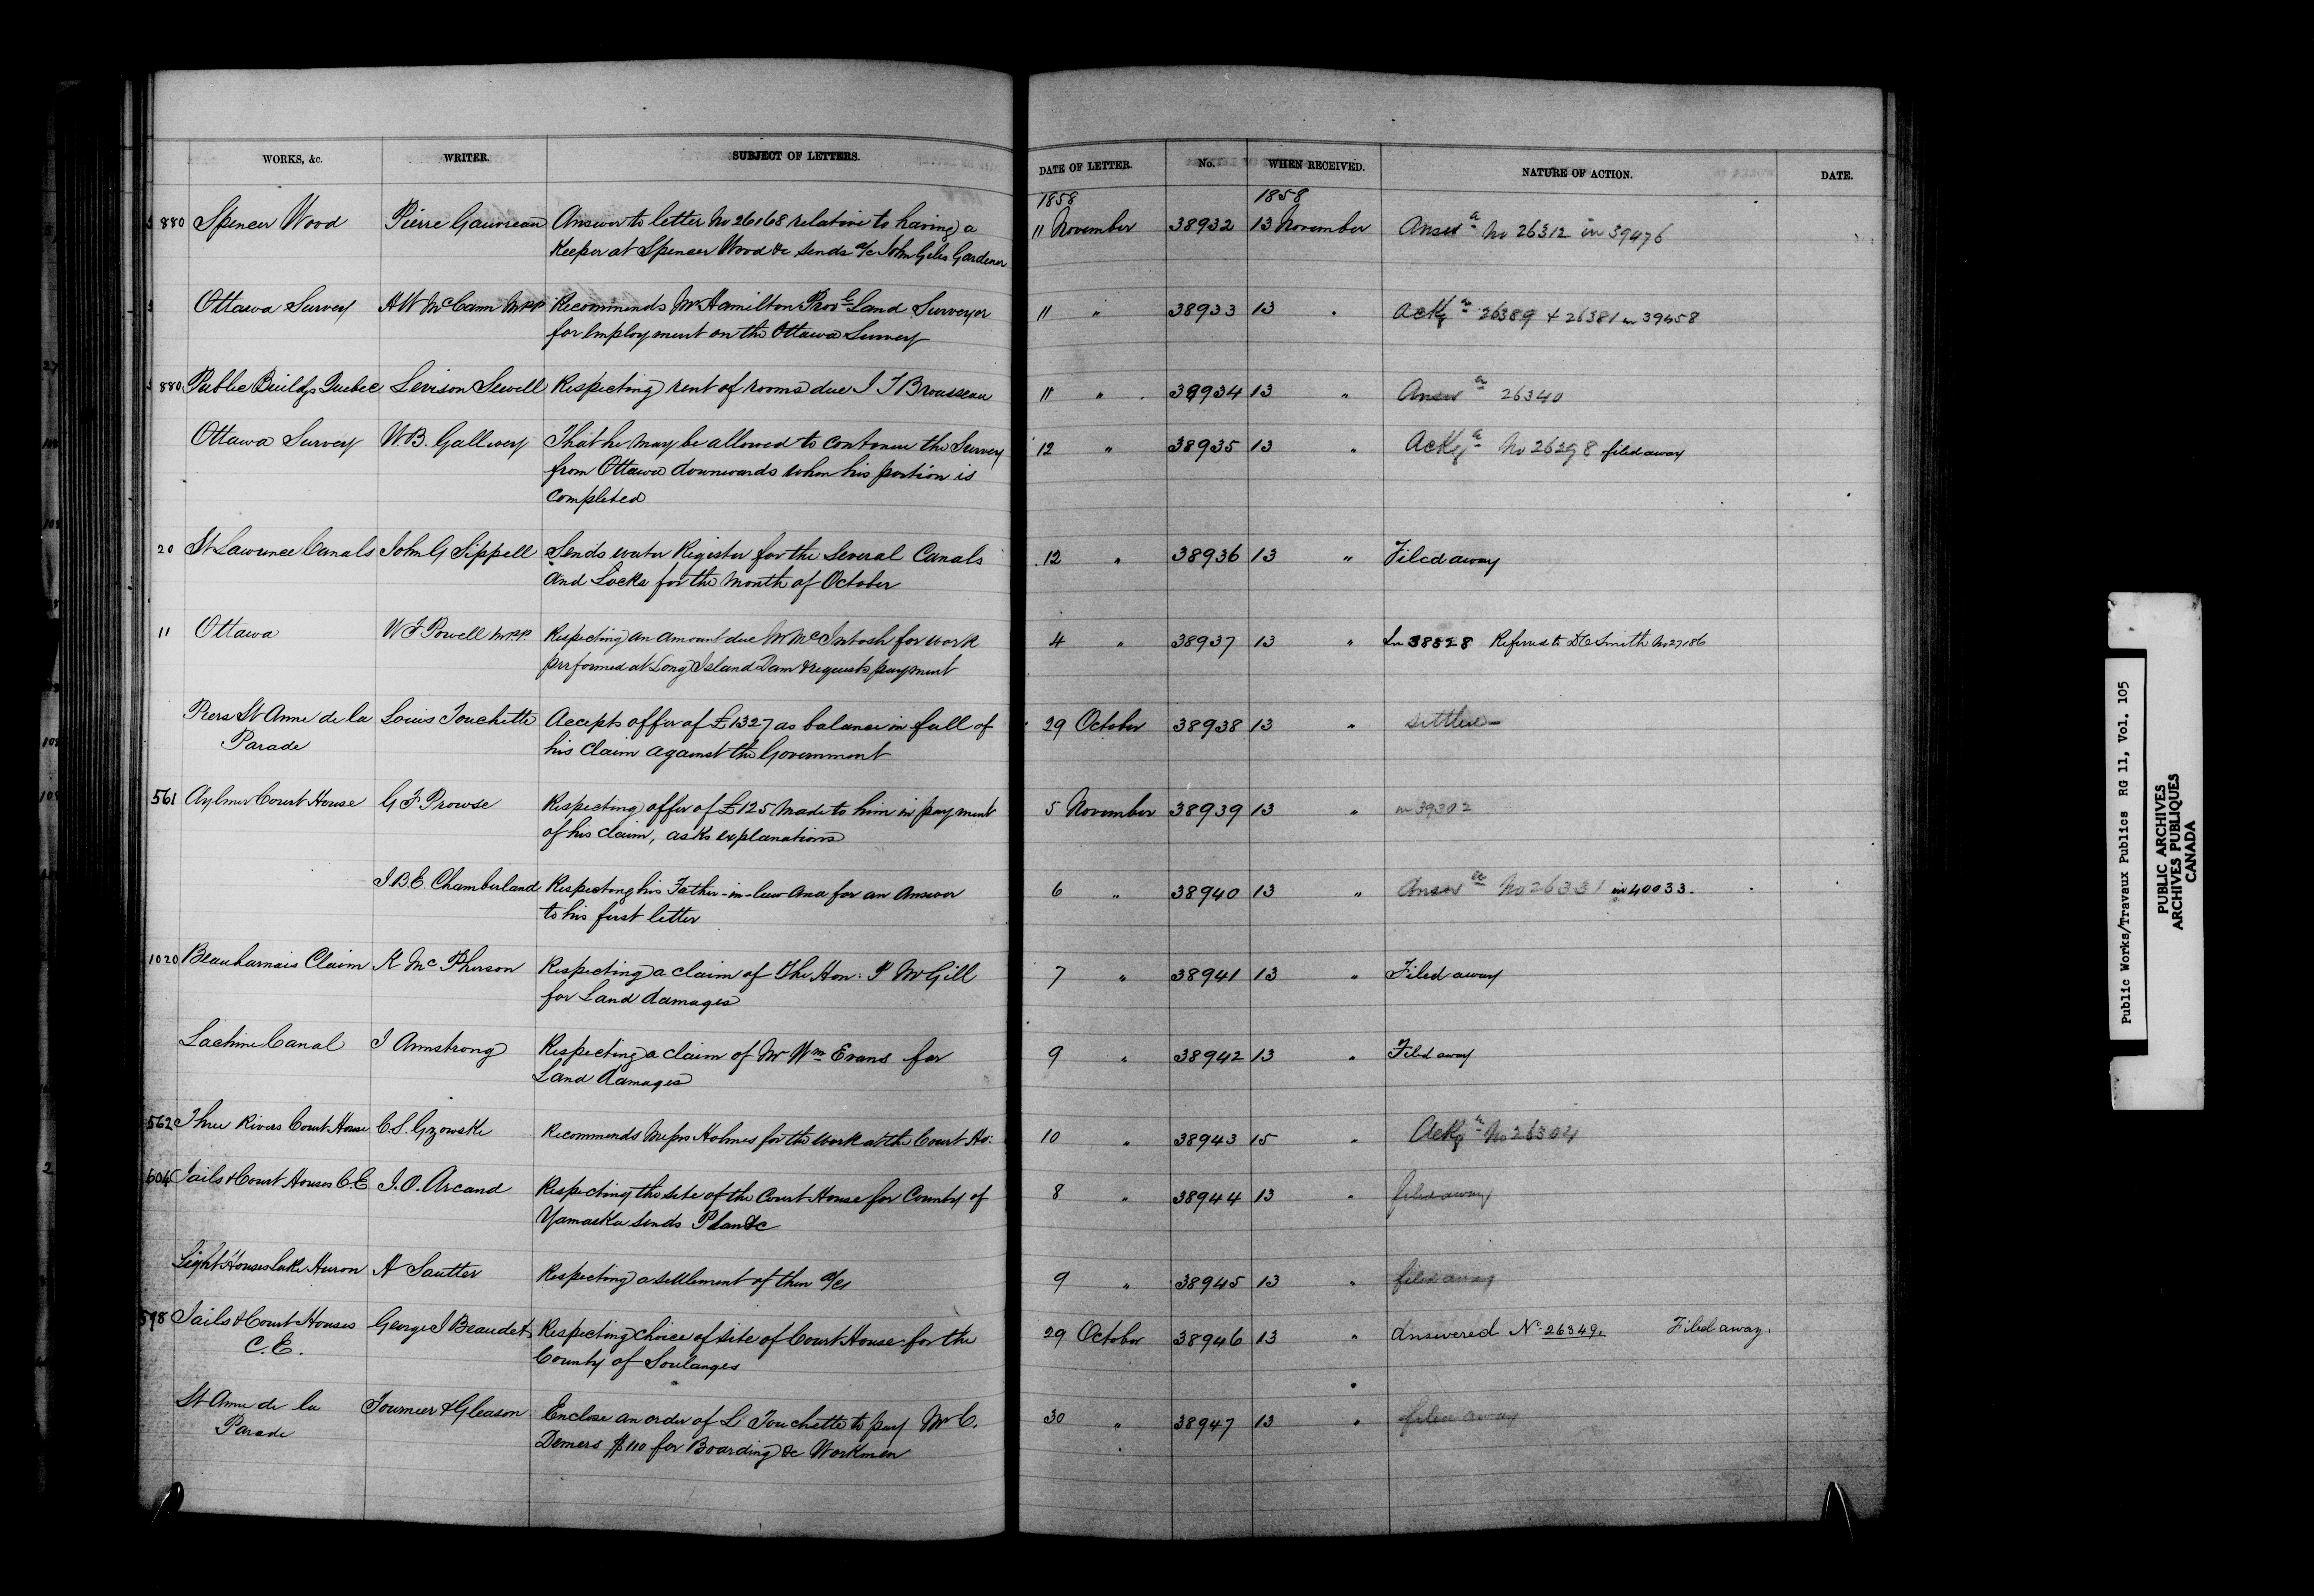 WORKS, &c. WRITER. SUBJECT OF LETTERS. DATE OF LETTER. No. WHEN RECEIVED. NATURE OF ACTION. DATE.
1858 1858
880 Spencer Wood Pierre Gauvreau Answer to letter No 26168 relative to having a 11 November 38932 13 November Answd No 26312 in 39476
Keeper at Spencer Wood &c sends a/c John Giles Gardener
Ottawa Survey H W McCann MPP Recommends Mr Hamilton Provl Land Surveyor 11 " 38933 13 " Ackgd 26389 + 26381 in 39458
for Employment on the Ottawa Survey
880 Public Buildgs Quebec Levison Sewell Respecting rent of rooms due J T Brousseau 11 " 38934 13 " Answd 26340
Ottawa Survey W.B. Gallwey That he may be allowed to continue the Survey 12 " 38935 13 " Ackgd No 26298 filed away
from Ottawa downwards when his portion is
completed
20 St Lawrence Canals John G Sippell Sends water Register for the several Canals 12 " 38936 13 " Filed away
and Locks for the month of October
11 Ottawa W F Powell M.P.P. Respecting an amount due Mr McIntosh for work 4 " 38937 13 " In 38828 Referred to D C Smith No 27186
prrformed at Long Island Dam & requests payment
Piers St Anne de la Louis Touchette Accepts offer of £1327 as balance in full of 29 October 38938 13 " settled
Parade his Claim against the Government
561 Aylmer Court House G F Prowse Respecting offer of £125 made to him in payment 5 November 38939 13 " in 39302
of his claim, asks explanations
J.B.E. Chamberland Respecting his Father-in-law and for an answer 6 " 38940 13 " Answd No 26331 in 40033.
to his first letter
1020 Beauharnais Claim K McPherson Respecting a claim of The Hon: P McGill 7 " 38941 13 " Filed away
for Land damages
Lachine Canal J Armstrong Respecting a claim of Mr Wm Evans for 9 " 38942 13 " Filed away
Land damages
562 Three Rivers Court House C.S. Gzowski Recommends Messrs Holmes for the work at the Court Ho: 10 " 38943 15 " Ackgd No 26304
604 Jails & Court Houses C.E J.O. Arcand Respecting the site of the Court House for County of 8 " 38944 13 " filed away
Yamaska sends Plan &c
Light Houses Lake Huron A Sautter Respecting a settlement of their a/cs 9 " 38945 13 " filed away
598 Jails & Court Houses George J Beaudet Respecting choice of site of Court House for the 29 October 38946 13 " Answered No 26349. Filed away.
C.E. County of Soulanges
St Anne de la Tournier & Gleason Enclose an order of L Touchette to pay Mr C. 30 " 38947 13 " filed away
Parade Demers $110 for Boarding &c Workmen
Public Works/Travaux Publics RG 11, Vol. 105
PUBLIC ARCHIVES
ARCHIVES PUBLIQUES
CANADA